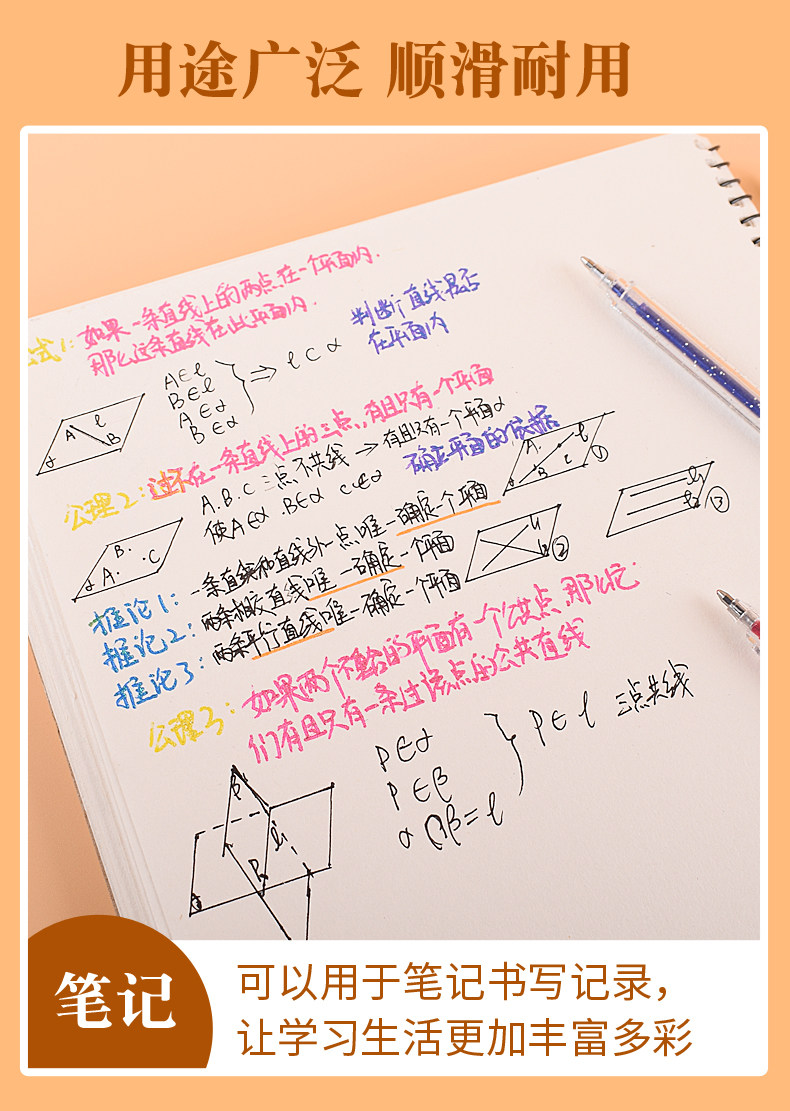 用途广泛 顺滑耐用
如果一条直线上的两点在一个平面内.
公式1: 那么这条直线在此平面内.
判断直线是否
在平面内
A∈l
B∈l
A∈α
B∈α
} ⇒ l⊂α
A l B
α
公理2: 过不在一条直线上的三点,有且只有一个平面
A.B.C三点不共线 → 有且只有一个平面α
使A∈α.B∈α C∈α
确定平面的依据
B. A. C
α
A. B C l
α
①
推论1: 一条直线和直线外一点唯一确定一个平面
推论2: 两条相交直线唯一确定一个平面
推论3: 两条平行直线唯一确定一个平面
l1
l2
②
l1
l2
③
公理3: 如果两个不重合的平面有一个公共点,那么它
们有且只有一条过该点的公共直线
P∈α
P∈β
α∩β=l
} P∈l 三点共线
β
l
P
α
笔记
可以用于笔记书写记录，
让学习生活更加丰富多彩